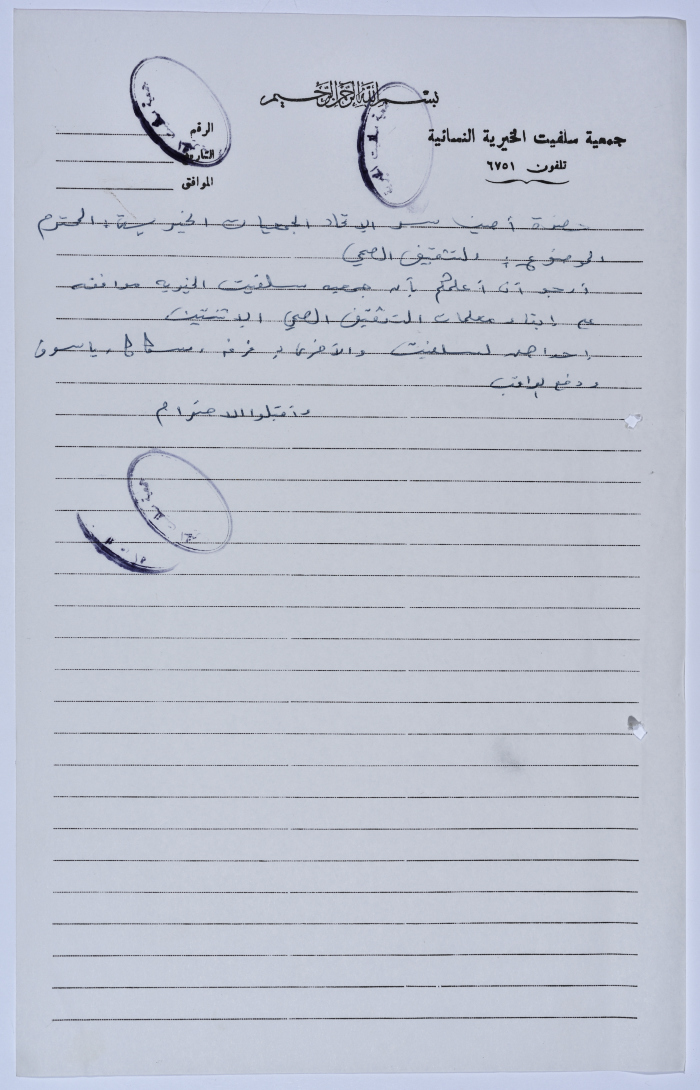 بسم الله الرحمن الرحيم
جمعية سلفيت الخيرية النسائية
تلفون ٦٧٥١
الرقم
التاريخ
الموافق
حضرة أمين سر الاتحاد الجمعيات الخيرية المحترم
الموضوع : التثقيف الصحي
أرجو أن أعلمكم بأن جمعيه سلفيت الخيريه موافقه
على إبقاء معلمات التثقيف الصحي الاثنتين
إحداهن لسلفيت والأخرى لـ ياسوف
ودفع الراتب
واقبلوا الاحترام
جمعية